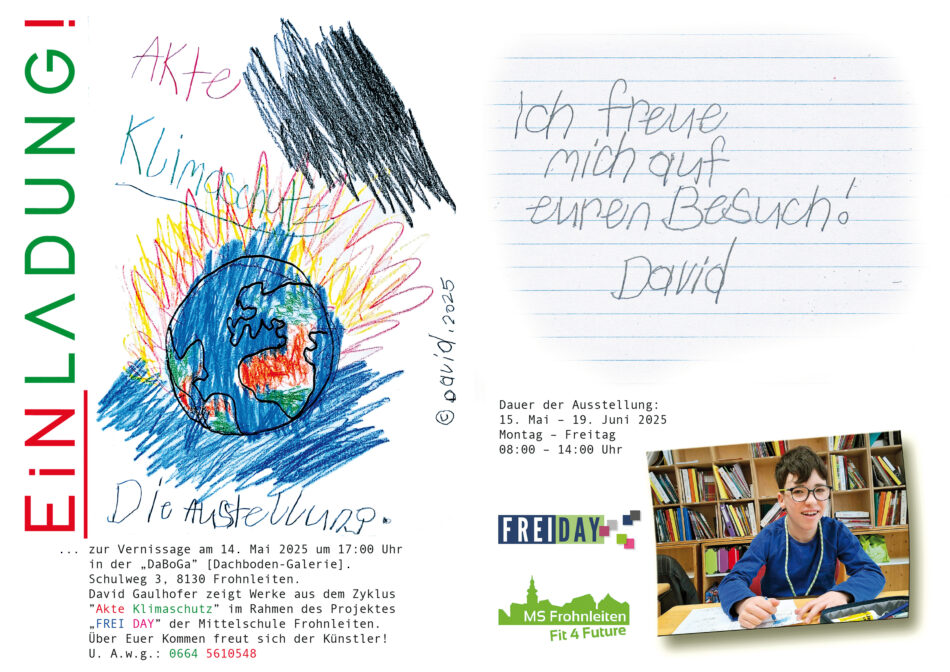 EiNLADUNG!
AKte
Klimaschutz
© David.2025
Die Austellung.
... zur Vernissage am 14. Mai 2025 um 17:00 Uhr
in der „DaBoGa” [Dachboden-Galerie].
Schulweg 3, 8130 Frohnleiten.
David Gaulhofer zeigt Werke aus dem Zyklus
”Akte Klimaschutz” im Rahmen des Projektes
„FREI DAY” der Mittelschule Frohnleiten.
Über Euer Kommen freut sich der Künstler!
U. A.w.g.: 0664 5610548
Ich freue
mich auf
euren Besuch!
David
Dauer der Ausstellung:
15. Mai – 19. Juni 2025
Montag – Freitag
08:00 – 14:00 Uhr
FREIDAY
MS Frohnleiten
Fit 4 Future